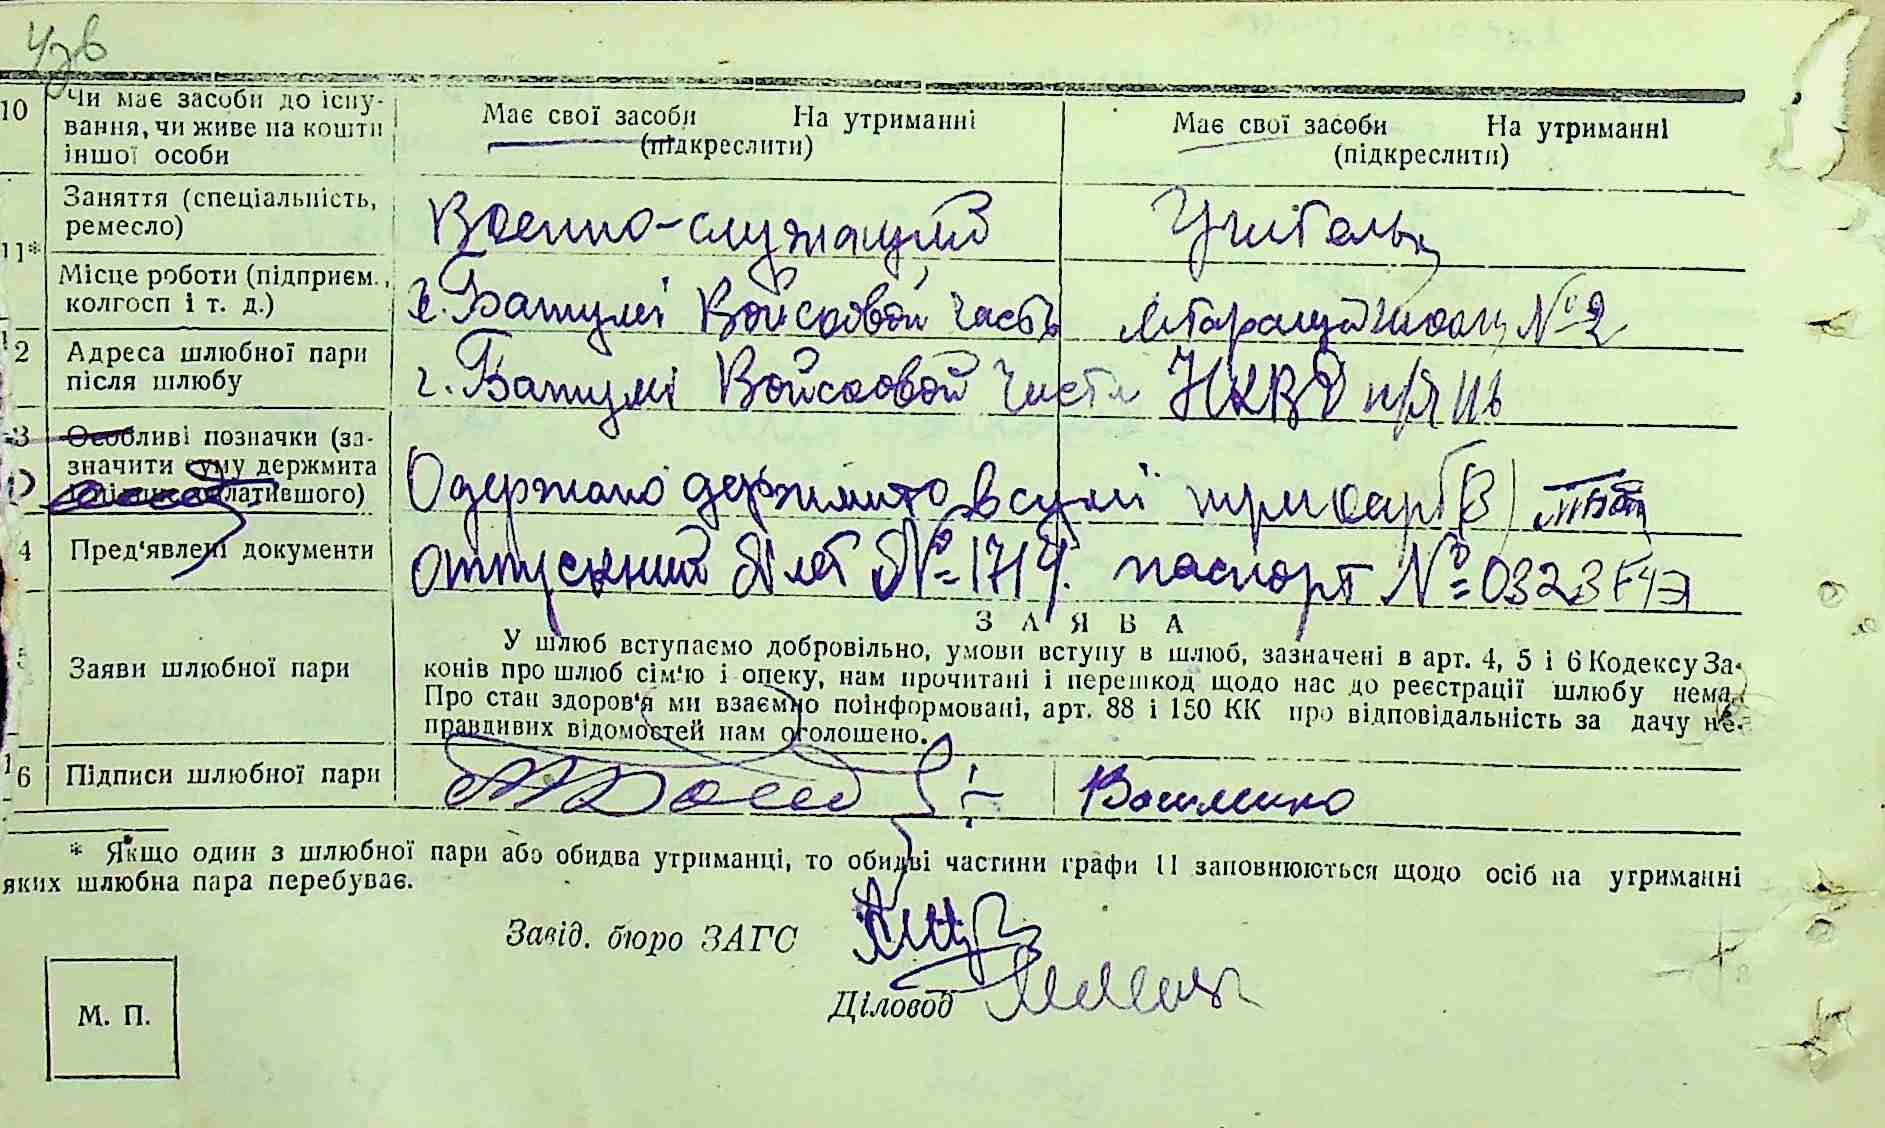 10 Чи має засоби до існу-
вання, чи живе на кошти
іншої особи
Має свої засоби На утриманні
(підкреслити)
Має свої засоби На утриманні
(підкреслити)
11* Заняття (спеціальність,
ремесло)
Военно-служащий
Учитель
Місце роботи (підприєм.,
колгосп і т. д.)
г. Батумі Войсковой часть
№ 2
2 Адреса шлюбної пари
після шлюбу
г. Батумі Войсковой части НКВД п/я
3 Особливі позначки (за-
значити суму держмита
латившого)
Одержано держмито в сумі три карб (3)
4 Пред'явлені документи
Отпускний білет № 1714. паспорт №
ЗАЯВА
5 Заяви шлюбної пари
У шлюб вступаємо добровільно, умови вступу в шлюб, зазначені в арт. 4, 5 і 6 Кодексу За-
конів про шлюб сім'ю і опеку, нам прочитані і перешкод щодо нас до реєстрації шлюбу нема.
Про стан здоров'я ми взаємно поінформовані, арт. 88 і 150 КК про відповідальність за дачу не-
правдивих відомостей нам оголошено.
16 Підписи шлюбної пари
* Якщо один з шлюбної пари або обидва утриманці, то обидві частини графи 11 заповнюються щодо осіб на утриманні
яких шлюбна пара перебуває.
Завід. бюро ЗАГС
Діловод
М. П.